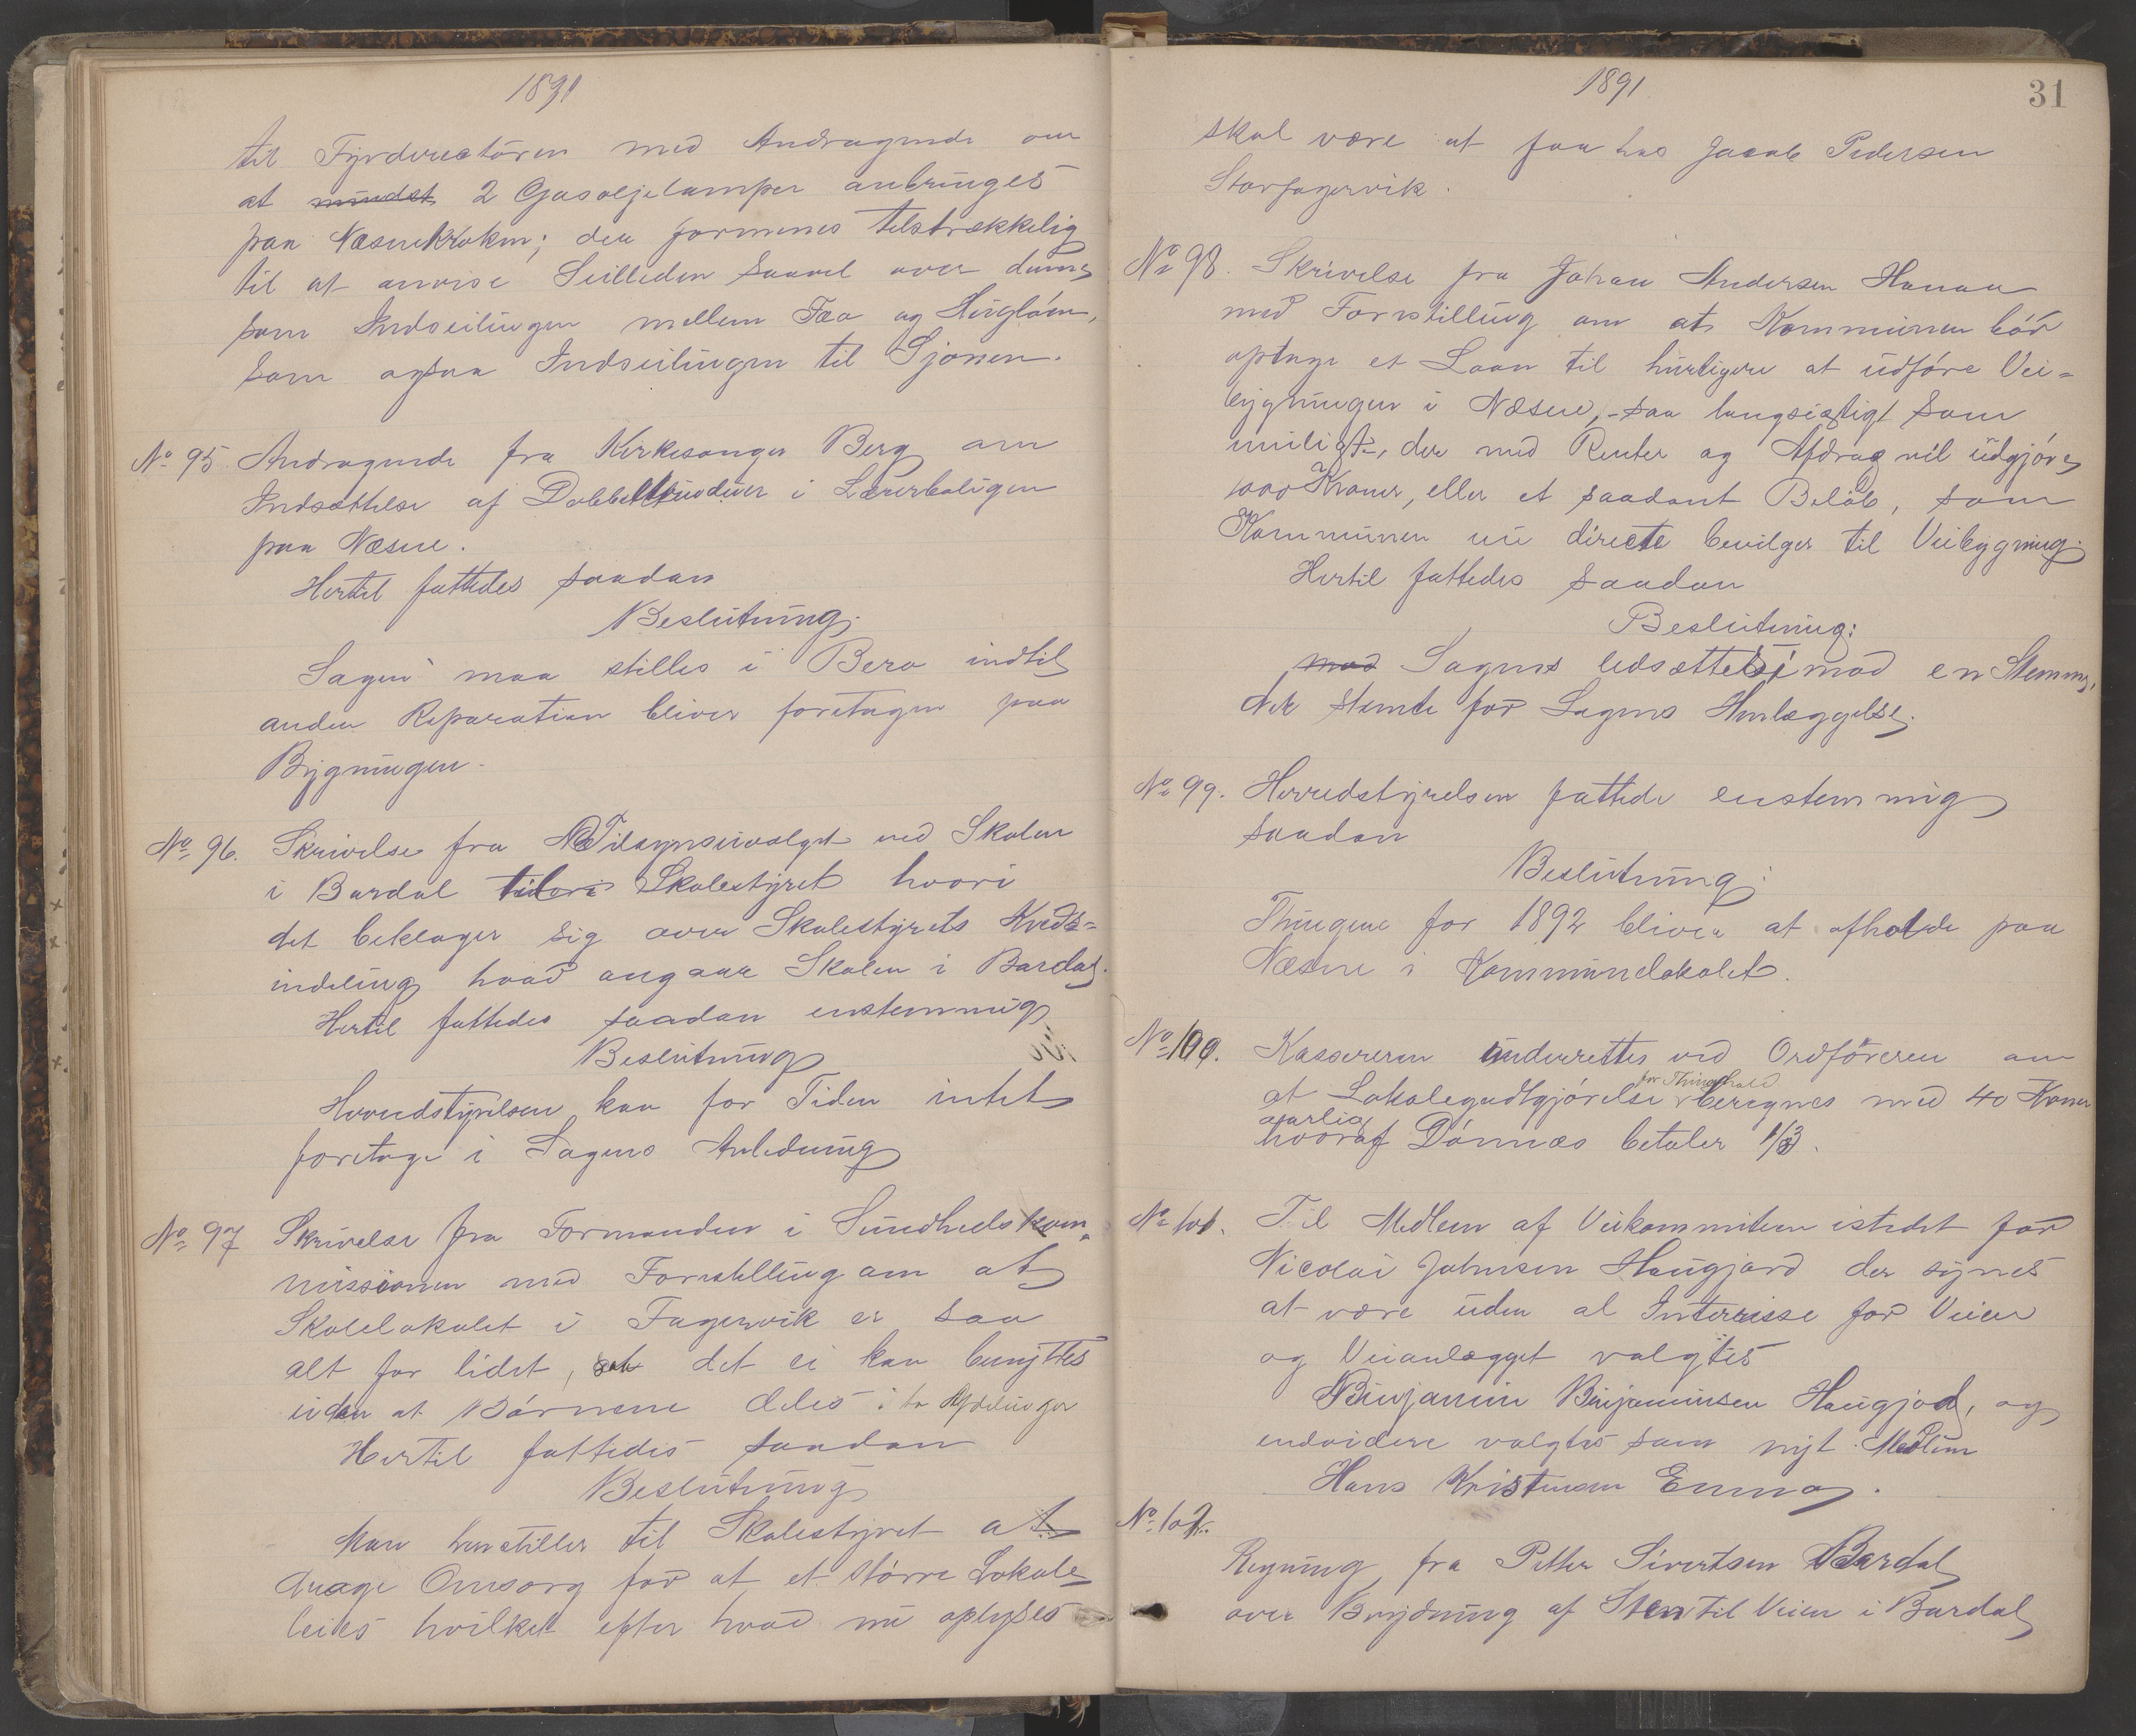 1891
til Fyrdirectøren med Andragende om
at mindst 2 Gasoljelamper anbringes
paa Næsnekroken; der formenes tilstrækkelig
til at anvise Seilleden saavel over denne
som Indseilingen mellem Fæø og Hugløen,
som ogsaa Indseilingen til Sjonen.
No 95. Andragende fra Kirkesanger Berg om
Indsættelse af Dobbeltvinduer i Lærerboligen
paa Næsne.
Hertil fattedes saadan
Beslutning.
Sagen maa stilles i Bero indtil
anden Reparation bliver foretagen paa
Bygningen.
No 96. Skrivelse fra Tilsynsudvalget ved Skolen
i Bardal Skolestyret hvori
det beklager sig over Skolestyrets Kreds-
indeling hvad angaar Skolen i Bardal.
Hertil fattedes saadan enstemmig
Beslutning
Herredstyrelsen kan for Tiden intet
foretage i Sagens Anledning
No 97 Skrivelse fra Formanden i Sundhedskom-
missionen med Forestilling om at
Skolelokalet i Fagervik er saa
alt for lidet, at det ei kan benyttes
uden at Børnene deles i to Afdelinger
Hertil fattedes saadan
Beslutning
Man henstiller til Skolestyret at
drage Omsorg for at et større Lokale
leies hvilket efter hvad nu oplyses
1891
31
skal være at faa hos Jacob Pedersen
Storfagervik.
No 98. Skrivelse fra Johan Andersen Hanan
med Forestilling om at Kommunen bør
optage et Laan til hurtigere at udføre Vei-
bygningen i Næsne, - saa langsigtigt som
muligt, der med Renter og Afdrag vil udgjøre
1000 Kroner, eller et saadant Beløb, som
Kommunen nu directe bevilger til Veibygning.
Hertil fattedes saadan
Beslutning:
mod Sagens Udsættelse imod en Stemme,
der stemte for Sagens Henlæggelse.
No 99. Herredstyrelsen fattede enstemmig
saadan
Beslutning:
Thingene for 1892 bliver at afholde paa
Næsne i Kommunelokalet.
No 100. Kassereren underrettes ved Ordføreren om
for Thinghold
at Lokalegodtgjørelse beregnes med 40 Kroner
aarlig
hvoraf Dønnæs betaler 1/3.
No 101. Til Medlem af Veikommiteen istedet for
Nicolai Johnsen Haugjord der synes
at være uden al Interesse for Veien
og Veianlægget valgtes
Benjamin Benjaminsen Haugjod, og
endvidere valgtes som nyt Medlem
Hans Kristensen Enmo.
No 102.
Regning fra Petter Sivertsen Bardal
over Brydning af Sten til Veien i Bardal